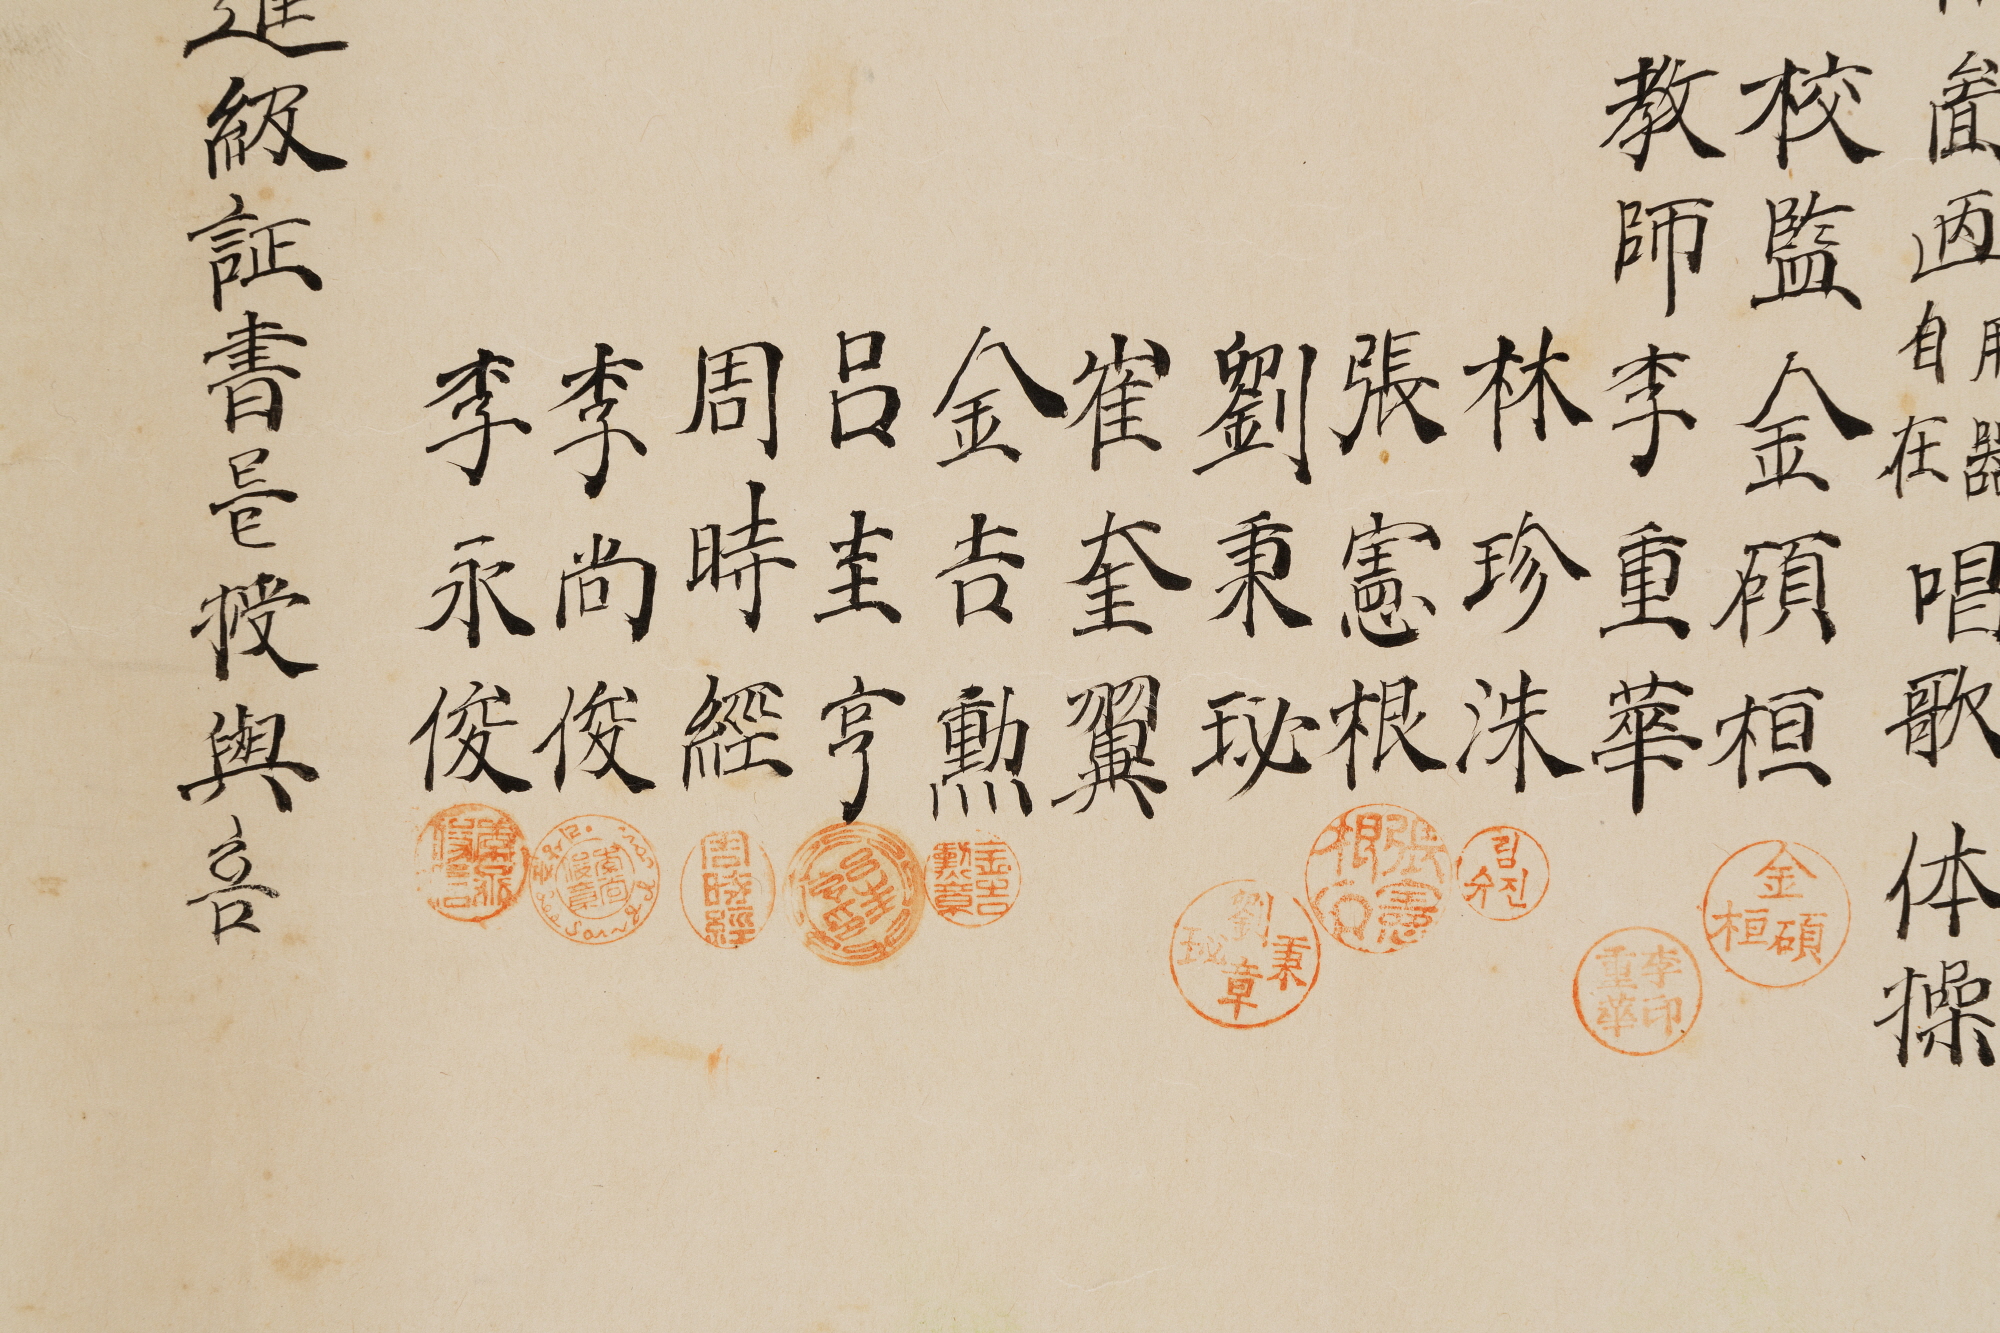 唱歌 体操
自在
校監 金碩桓
教師 李重華
林珍洙
張憲根
劉秉珌
崔奎翼
金吉勳
呂圭亨
周時經
李尚俊
李永俊
進級証書를 授與홈
金碩桓
李重華印
림진슈
張憲根印
劉秉珌章
金吉勳章
周時經
李尚俊章